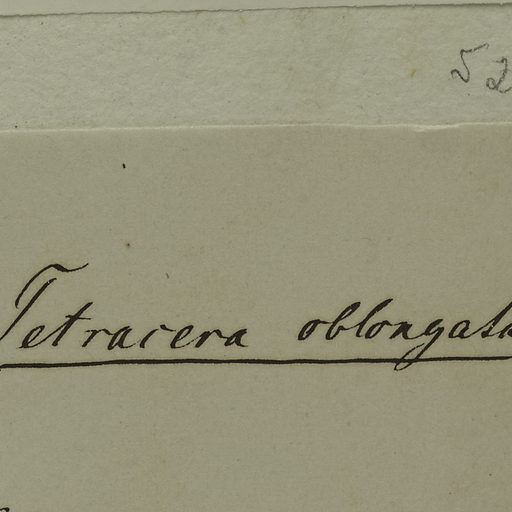 52
Tetracera oblongata